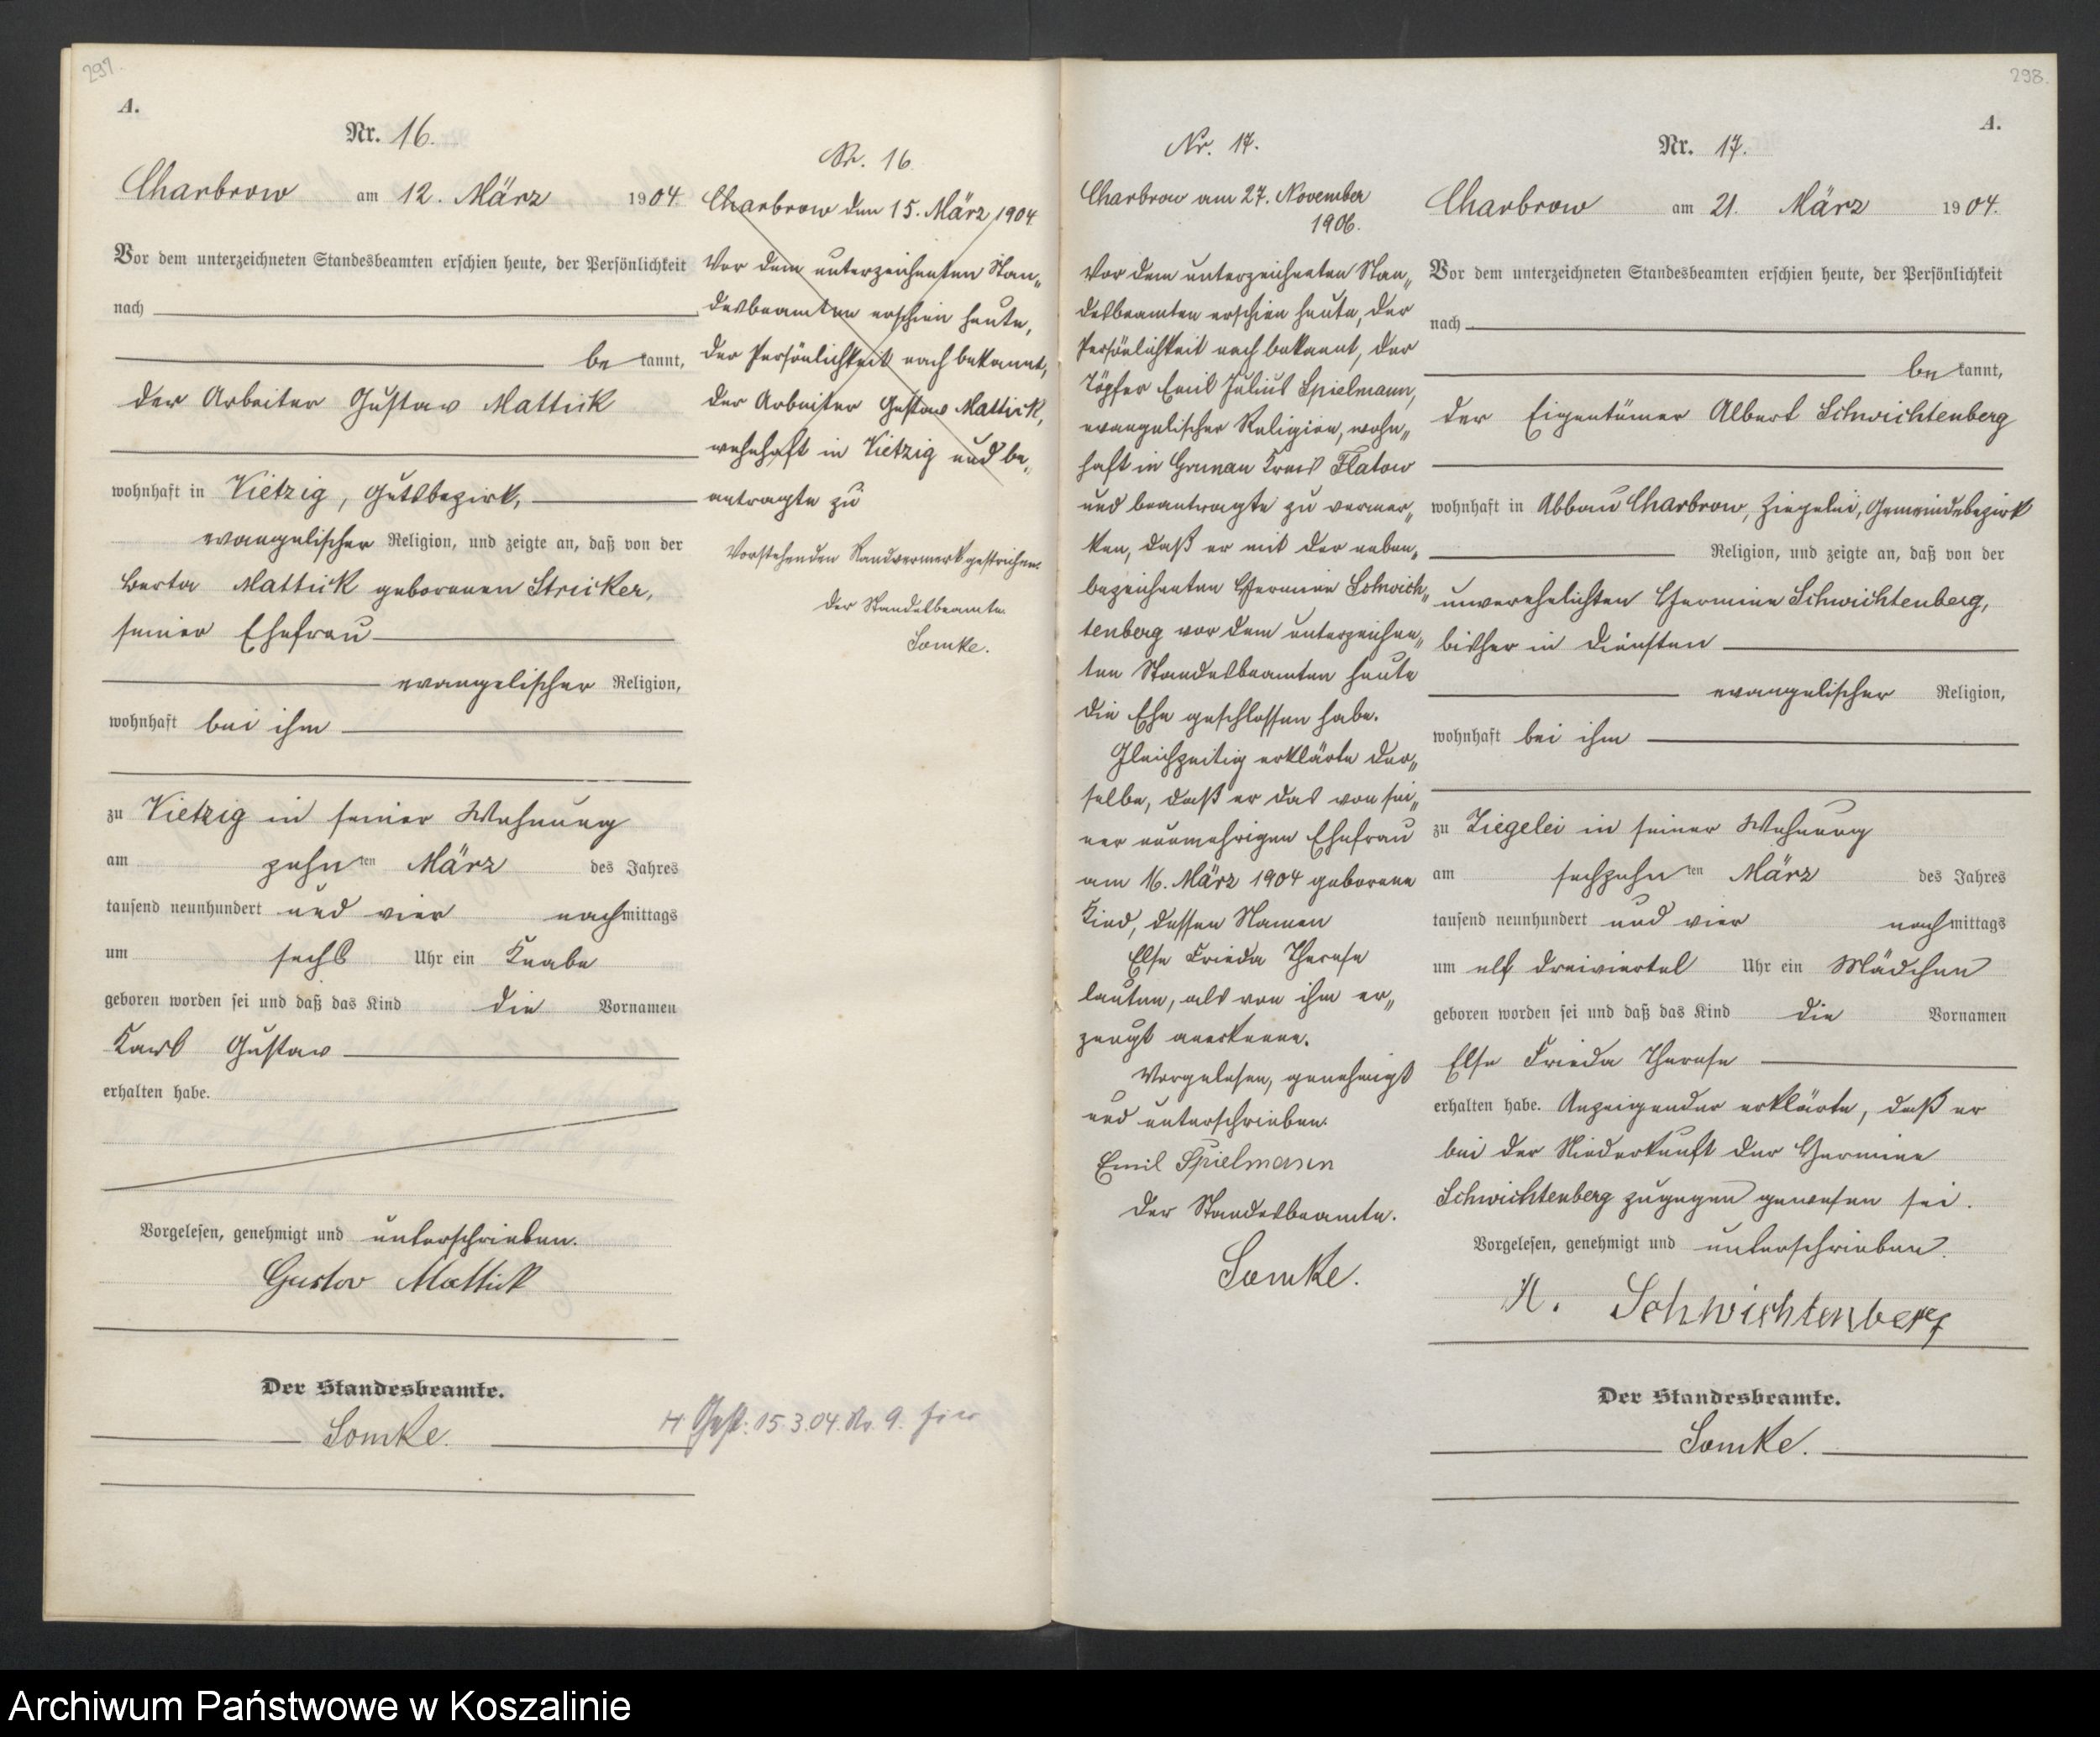 297.
A.
Nr. 16.
Charbrow am 12. März 1904.
Vor dem unterzeichneten Standesbeamten erschien heute, der Persönlichkeit
nach
be kannt,
der Arbeiter Gustav Mattick
wohnhaft in Vietzig, Gutsbezirk,
evangelischer Religion, und zeigte an, daß von der
Berta Mattick geborenen Stricker,
seiner Ehefrau
evangelischer Religion,
wohnhaft bei ihm
zu Vietzig in seiner Wohnung
am zehn ten März des Jahres
tausend neunhundert und vier nachmittags
um sechs Uhr ein Knabe
geboren worden sei und daß das Kind die Vornamen
Karl Gustav
erhalten habe.
Vorgelesen, genehmigt und unterschrieben.
Gustav Mattick
Der Standesbeamte.
Somke.
Nr. 16
Charbrow den 15. März 1904
Vor dem unterzeichneten Stan„
desbeamten erschien heute,
der Persönlichkeit nach bekannt,
der Arbeiter Gustav Mattick,
wohnhaft in Vietzig und be„
antragte zu
Vorstehenden Randvermerk gestrichen.
Der Standesbeamte.
Somke.
15.3.04. No. 9.
Nr. 17.
Charbrow am 27. November
1906.
Vor dem unterzeichneten Stan„
desbeamten erschien heute, der
Persönlichkeit nach bekannt, der
Töpfer Emil Julius Spielmann,
evangelischer Religion, wohn„
haft in Grunau Kreis Flatow
und beantragte zu vermer„
ken, daß er mit der neben„
bezeichneten Hermine Schwich„
tenberg vor dem unterzeichne„
ten Standesbeamten heute
die Ehe geschlossen habe.
Gleichzeitig erklärte der„
selbe, daß er das von sei„
ner nunmehrigen Ehefrau
am 16. März 1904 geborene
Kind, dessen Namen
Else Frieda Therese
lauten, als von ihm er„
zeugt anerkenne.
Vorgelesen, genehmigt
und unterschrieben.
Emil Spielmann
Der Standesbeamte.
Somke.
298.
A.
Nr. 17.
Charbrow am 21. März 1904.
Vor dem unterzeichneten Standesbeamten erschien heute, der Persönlichkeit
nach
be kannt,
der Eigentümer Albert Schwichtenberg
wohnhaft in Abbau Charbrow, Ziegelei, Gemeindebezirk
Religion, und zeigte an, daß von der
unverehelichten Hermine Schwichtenberg,
bisher in Diensten
evangelischer Religion,
wohnhaft bei ihm
zu Ziegelei in seiner Wohnung
am sechzehn ten März des Jahres
tausend neunhundert und vier nachmittags
um elf dreiviertel Uhr ein Mädchen
geboren worden sei und daß das Kind die Vornamen
Else Frieda Therese
erhalten habe. Anzeigender erklärte, daß er
bei der Niederkunft der Hermine
Schwichtenberg zugegen gewesen sei.
Vorgelesen, genehmigt und unterschrieben.
A. Schwichtenberg
Der Standesbeamte.
Somke.
Archiwum Państwowe w Koszalinie